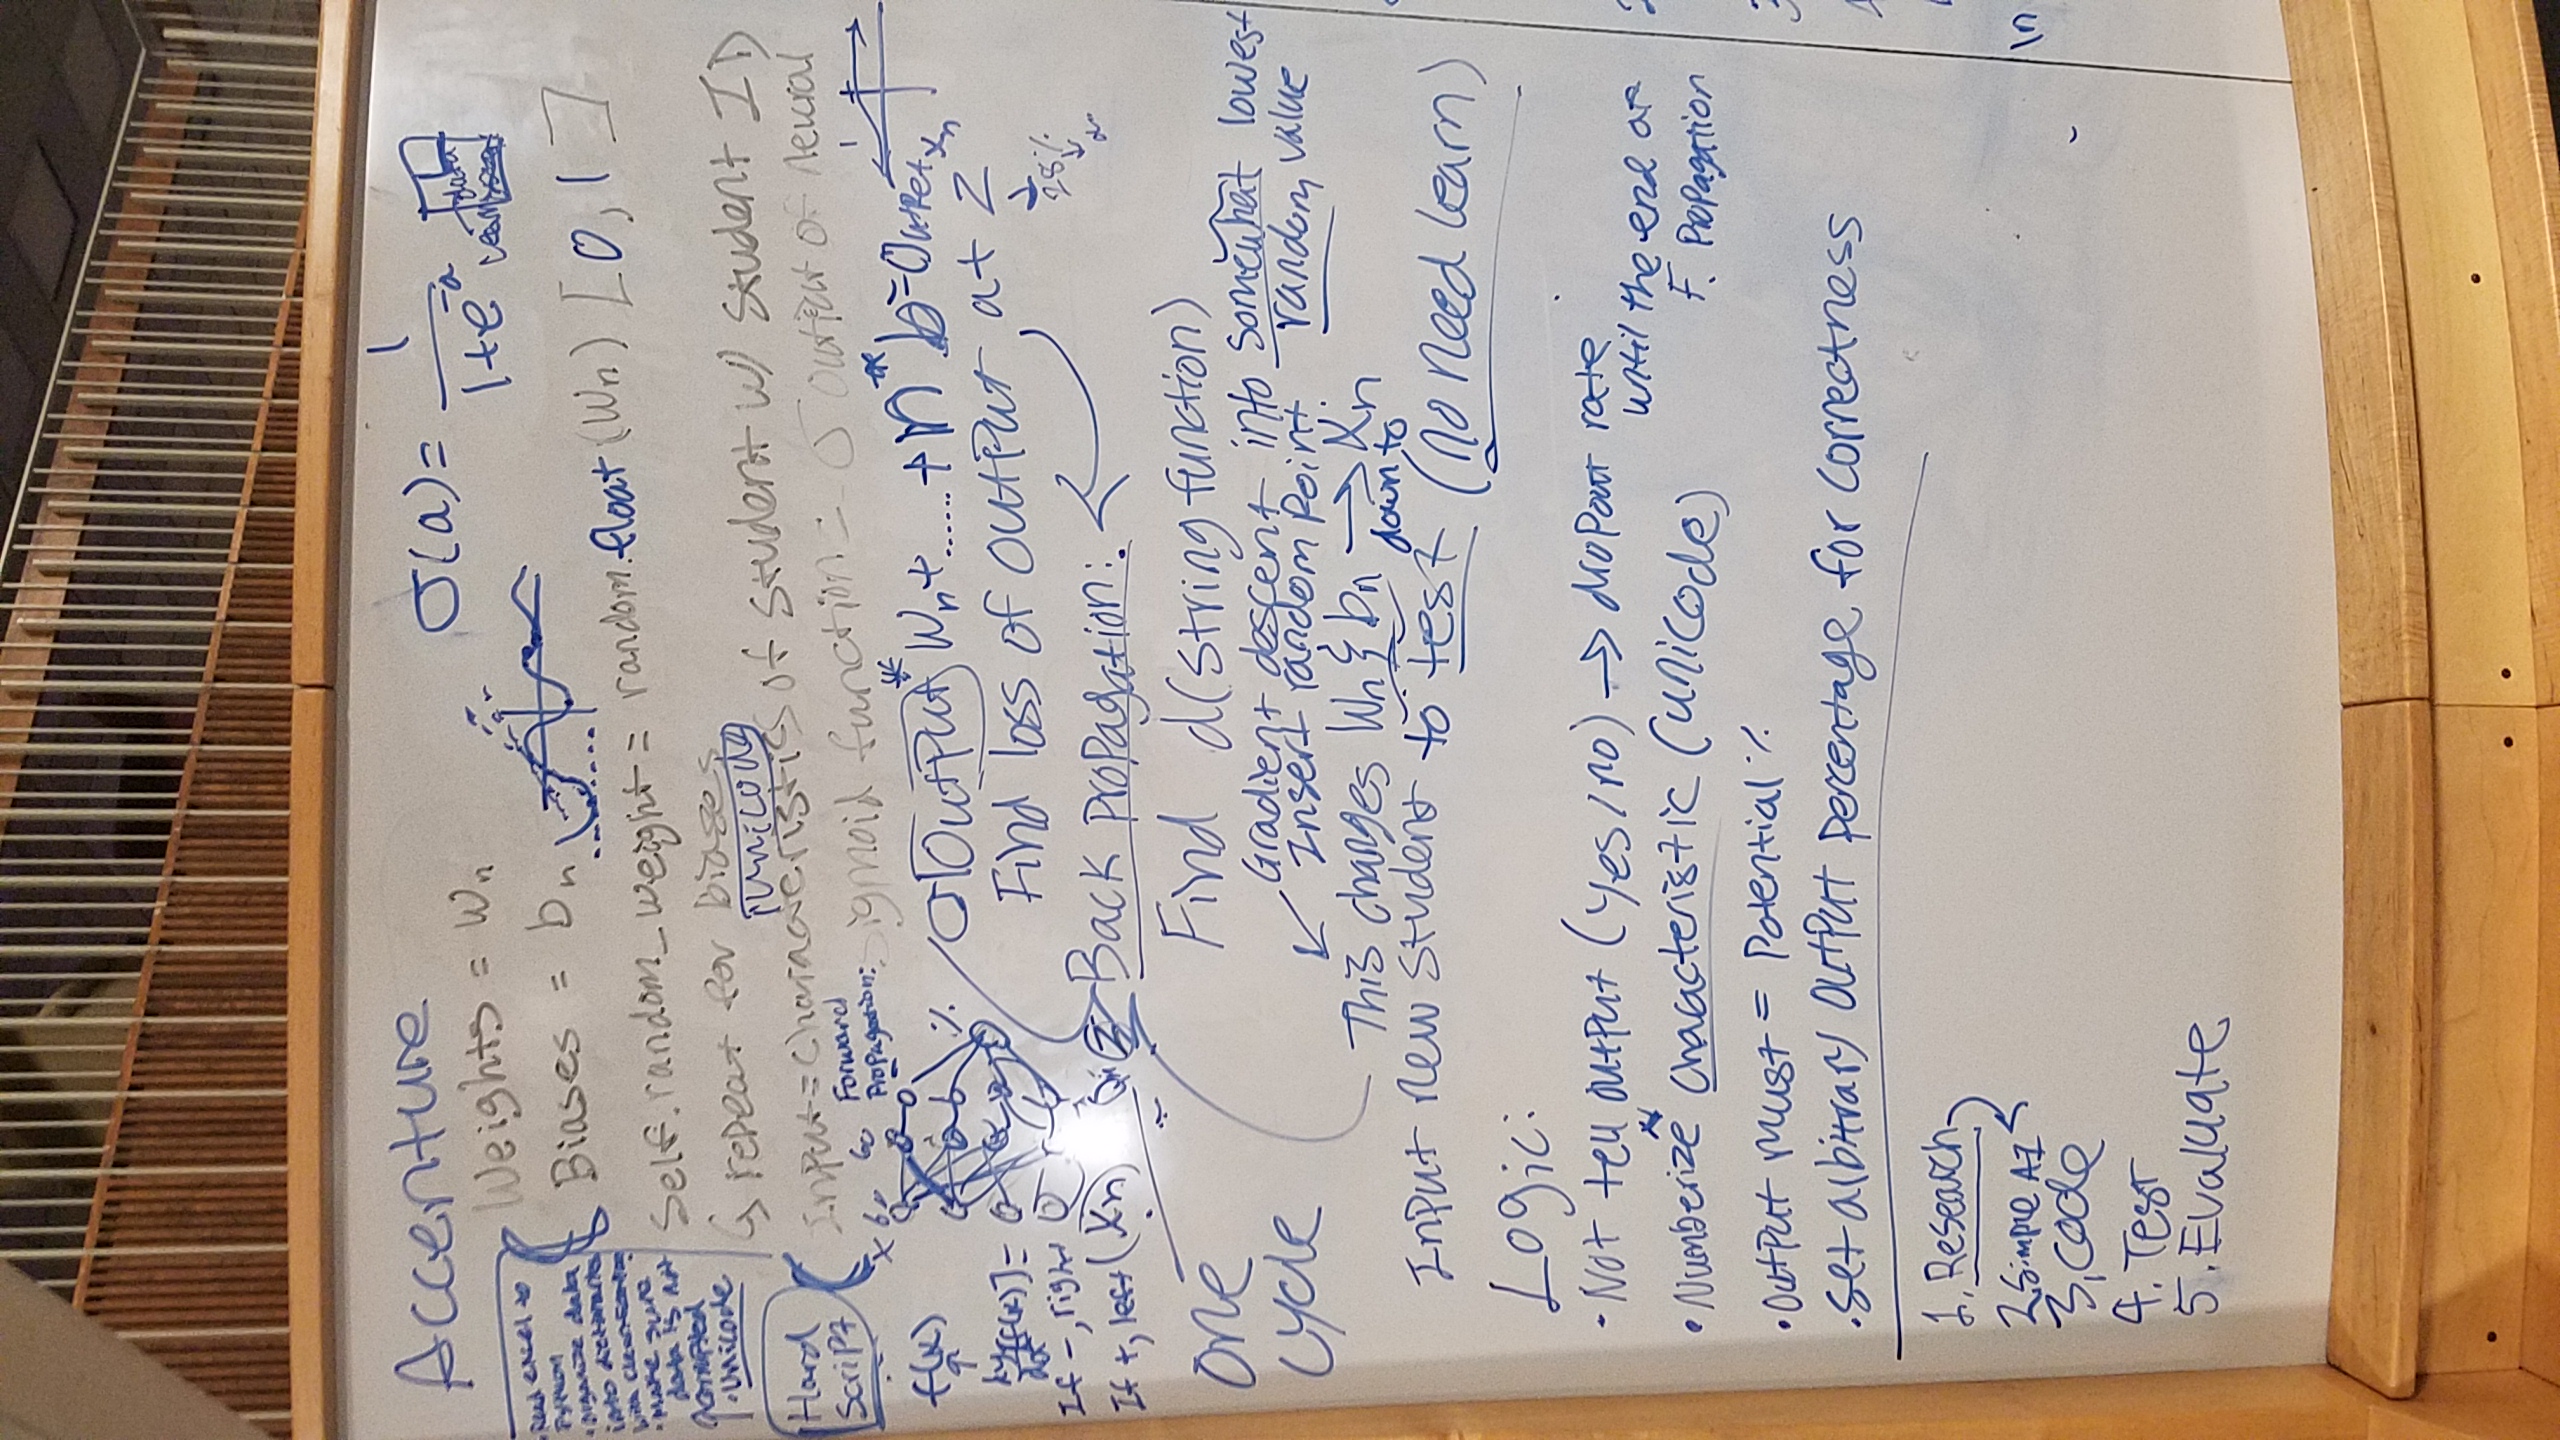 Accenture
σ(a) = 1
1+e^-a
Weights = Wn
Biases = bn
self.random_weight = random.float (Wn) [0, 1]
↳ repeat for biases
"unicode"
Input = Characteristics of student w/ student ID
Sigmoid function = σ output of neural
Forward
Propagation:
σ[(Output)* Wn + ...... + n* b = Output
Find loss of output at Z
Back Propagation:
Find d(string function)
Gradient descent into somewhat lowest
Insert random point random value
This changes Wn & bn → Xn
down to
Input new student to test (no need learn)
One
Cycle
• Read excel to
Python
• organize data
into dictionaries
• make sure
data is not
corrupted
• unicode
Hard
Script
f(x)
If -, right
If +, left (Xn)
Logic:
• Not tell output (yes/no) → dropout rate
until the end of
F. Propagation
• Numberize characteristic (unicode)
• Output must = Potential %
• Set albitrary output percentage for correctness
1. Research
2. Simple AI
3. Code
4. Test
5. Evaluate